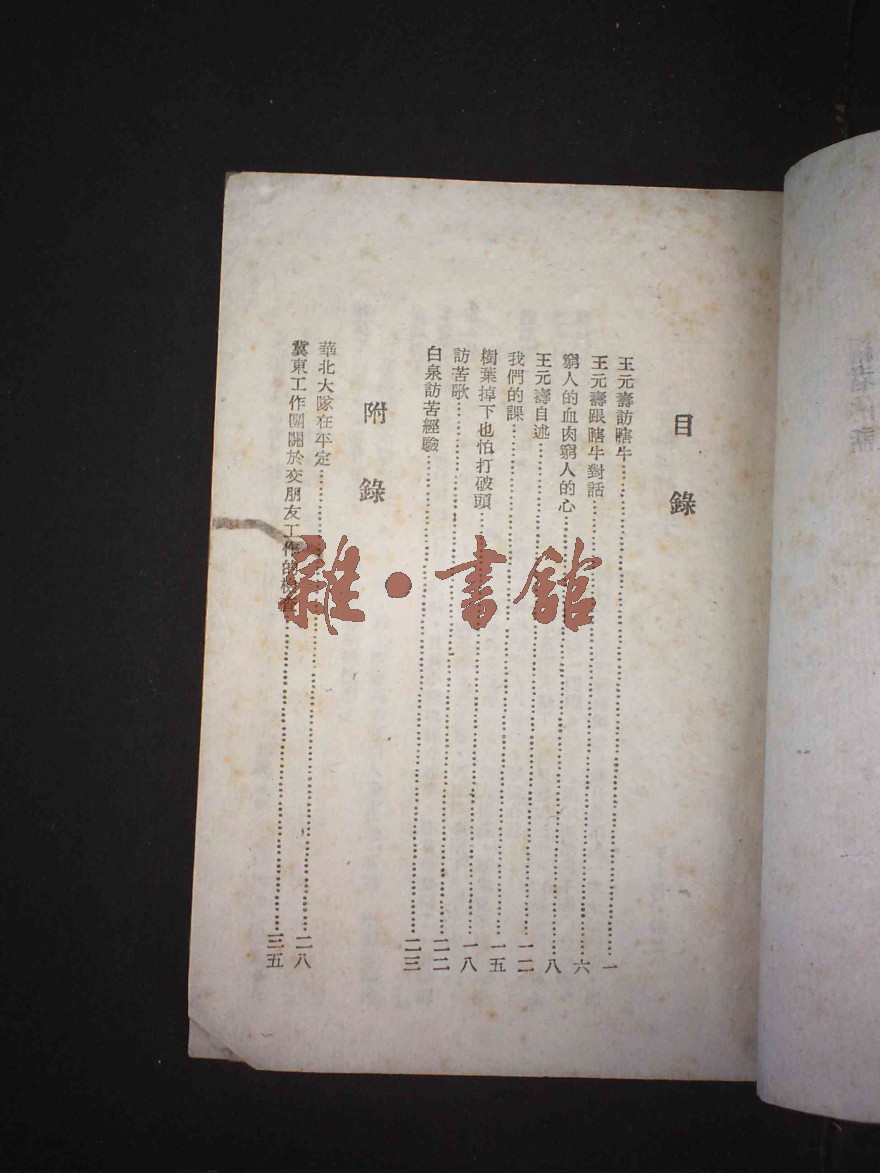 目錄
王元壽訪瞎牛……一
王元壽跟瞎牛對話……六
窮人的血肉窮人的心……八
王元壽自述……一二
我們的課……一五
樹葉掉下也怕打破頭……一八
訪苦歌……二二
白泉訪苦經驗……二三
附錄
華北大隊在平定……二八
冀東工作團關於交朋友工作的檢查……三五
雜·書館